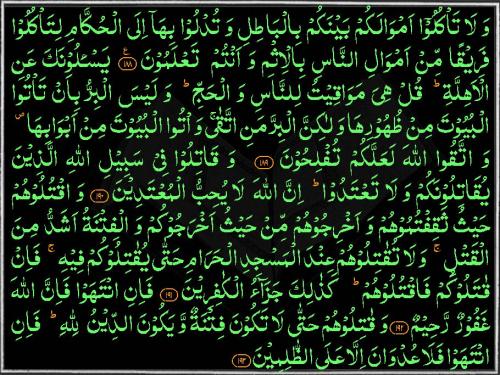 وَ لَا تَاْكُلُوْۤا اَمْوَالَكُمْ بَیْنَكُمْ بِالْبَاطِلِ وَ تُدْلُوْا بِهَاۤ اِلَى الْحُكَّامِ لِتَاْكُلُوْا
فَرِیْقًا مِّنْ اَمْوَالِ النَّاسِ بِالْاِثْمِ وَ اَنْتُمْ تَعْلَمُوْنَ ﴿۱۸۸﴾ یَسْـَٔلُوْنَكَ عَنِ
الْاَهِلَّةِ ؕ قُلْ هِیَ مَوَاقِیْتُ لِلنَّاسِ وَ الْحَجِّ ؕ وَ لَیْسَ الْبِرُّ بِاَنْ تَاْتُوا
الْبُیُوْتَ مِنْ ظُهُوْرِهَا وَ لٰكِنَّ الْبِرَّ مَنِ اتَّقٰى ۚ وَ اْتُوا الْبُیُوْتَ مِنْ اَبْوَابِهَا ۪
وَ اتَّقُوا اللّٰهَ لَعَلَّكُمْ تُفْلِحُوْنَ ﴿۱۸۹﴾ وَ قَاتِلُوْا فِیْ سَبِیْلِ اللّٰهِ الَّذِیْنَ
یُقَاتِلُوْنَكُمْ وَ لَا تَعْتَدُوْا ؕ اِنَّ اللّٰهَ لَا یُحِبُّ الْمُعْتَدِیْنَ ﴿۱۹۰﴾ وَ اقْتُلُوْهُمْ
حَیْثُ ثَقِفْتُمُوْهُمْ وَ اَخْرِجُوْهُمْ مِّنْ حَیْثُ اَخْرَجُوْكُمْ وَ الْفِتْنَةُ اَشَدُّ مِنَ
الْقَتْلِ ۚ وَ لَا تُقٰتِلُوْهُمْ عِنْدَ الْمَسْجِدِ الْحَرَامِ حَتّٰى یُقٰتِلُوْكُمْ فِیْهِ ۚ فَاِنْ
قٰتَلُوْكُمْ فَاقْتُلُوْهُمْ ؕ كَذٰلِكَ جَزَآءُ الْكٰفِرِیْنَ ﴿۱۹۱﴾ فَاِنِ انْتَهَوْا فَاِنَّ اللّٰهَ
غَفُوْرٌ رَّحِیْمٌ ﴿۱۹۲﴾ وَ قٰتِلُوْهُمْ حَتّٰى لَا تَكُوْنَ فِتْنَةٌ وَّ یَكُوْنَ الدِّیْنُ لِلّٰهِ ؕ فَاِنِ
انْتَهَوْا فَلَا عُدْوَانَ اِلَّا عَلَى الظّٰلِمِیْنَ ﴿۱۹۳﴾